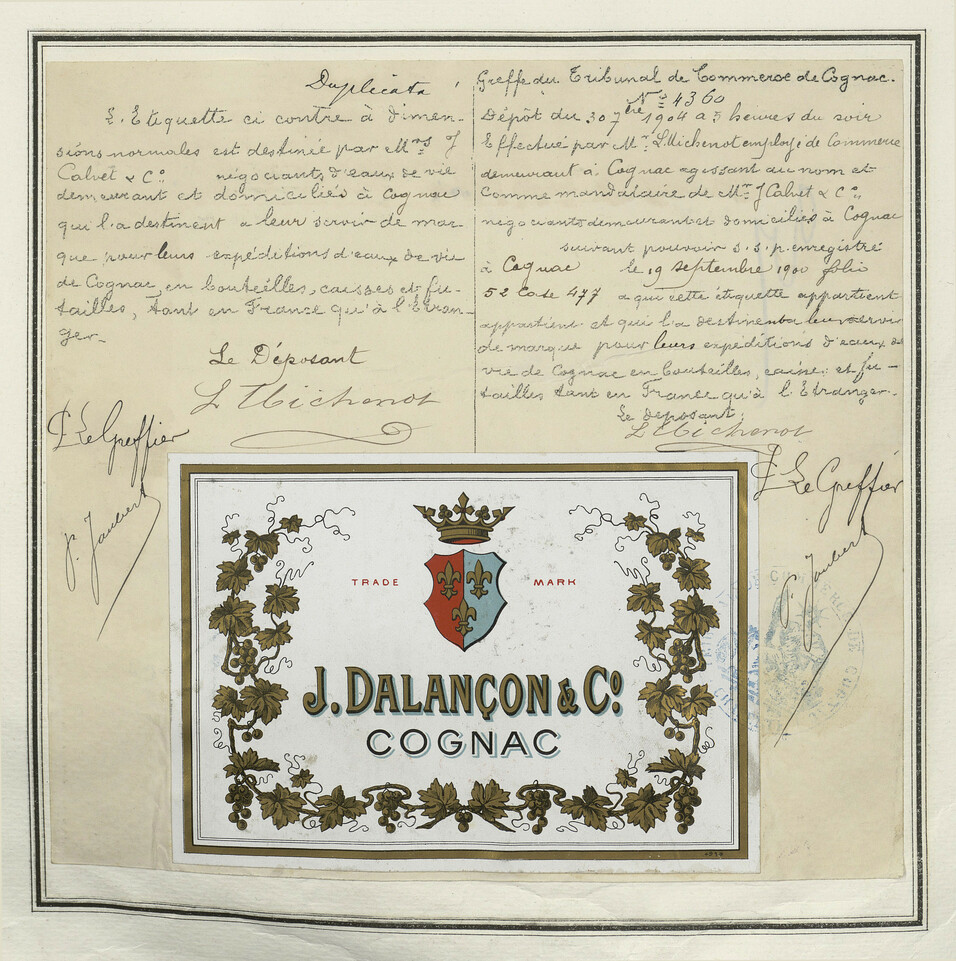 Duplicata
L'Etiquette ci contre à dimen-
sions normales est destinée par Mrs J
Calvet & Co. négociants d'eaux de vie
demeurant et domiciliés à Cognac
qui l'a destinent a leur servir de mar
que pour leurs expéditions d'eaux de vie
de Cognac, en bouteilles, caisses et fu-
tailles, tant en France qu'à l'Etran-
ger.-
Le Déposant
L Michenot
P. Le Greffier
P. Jaubert
Greffe du Tribunal de Commerce de Cognac.
No 4360
Dépôt du 30 7bre 1904 a 5 heures du soir
Effectué par Mr L Michenot employé de Commerce
demeurant à Cognac agissant au nom et
Comme mandataire de Mrs J Calvet & Co.
negociants demeurant et domiciliés à Cognac
suivant pouvoir s.s.p. enregistré
à Cognac le 19 Septembre 1900 folio
52 Case 477 a qui cette étiquette appartient
appartient et qui l'a destinent a leur servir
de marque pour leurs expéditions d'eaux de
vie de Cognac en bouteilles, caisses et fu-
tailles tant en France qu'à l'Etranger.-
Le deposant;
L Michenot
P. Le Greffier
P. Jaubert
TRADE MARK
J. DALANÇON & Co.
COGNAC